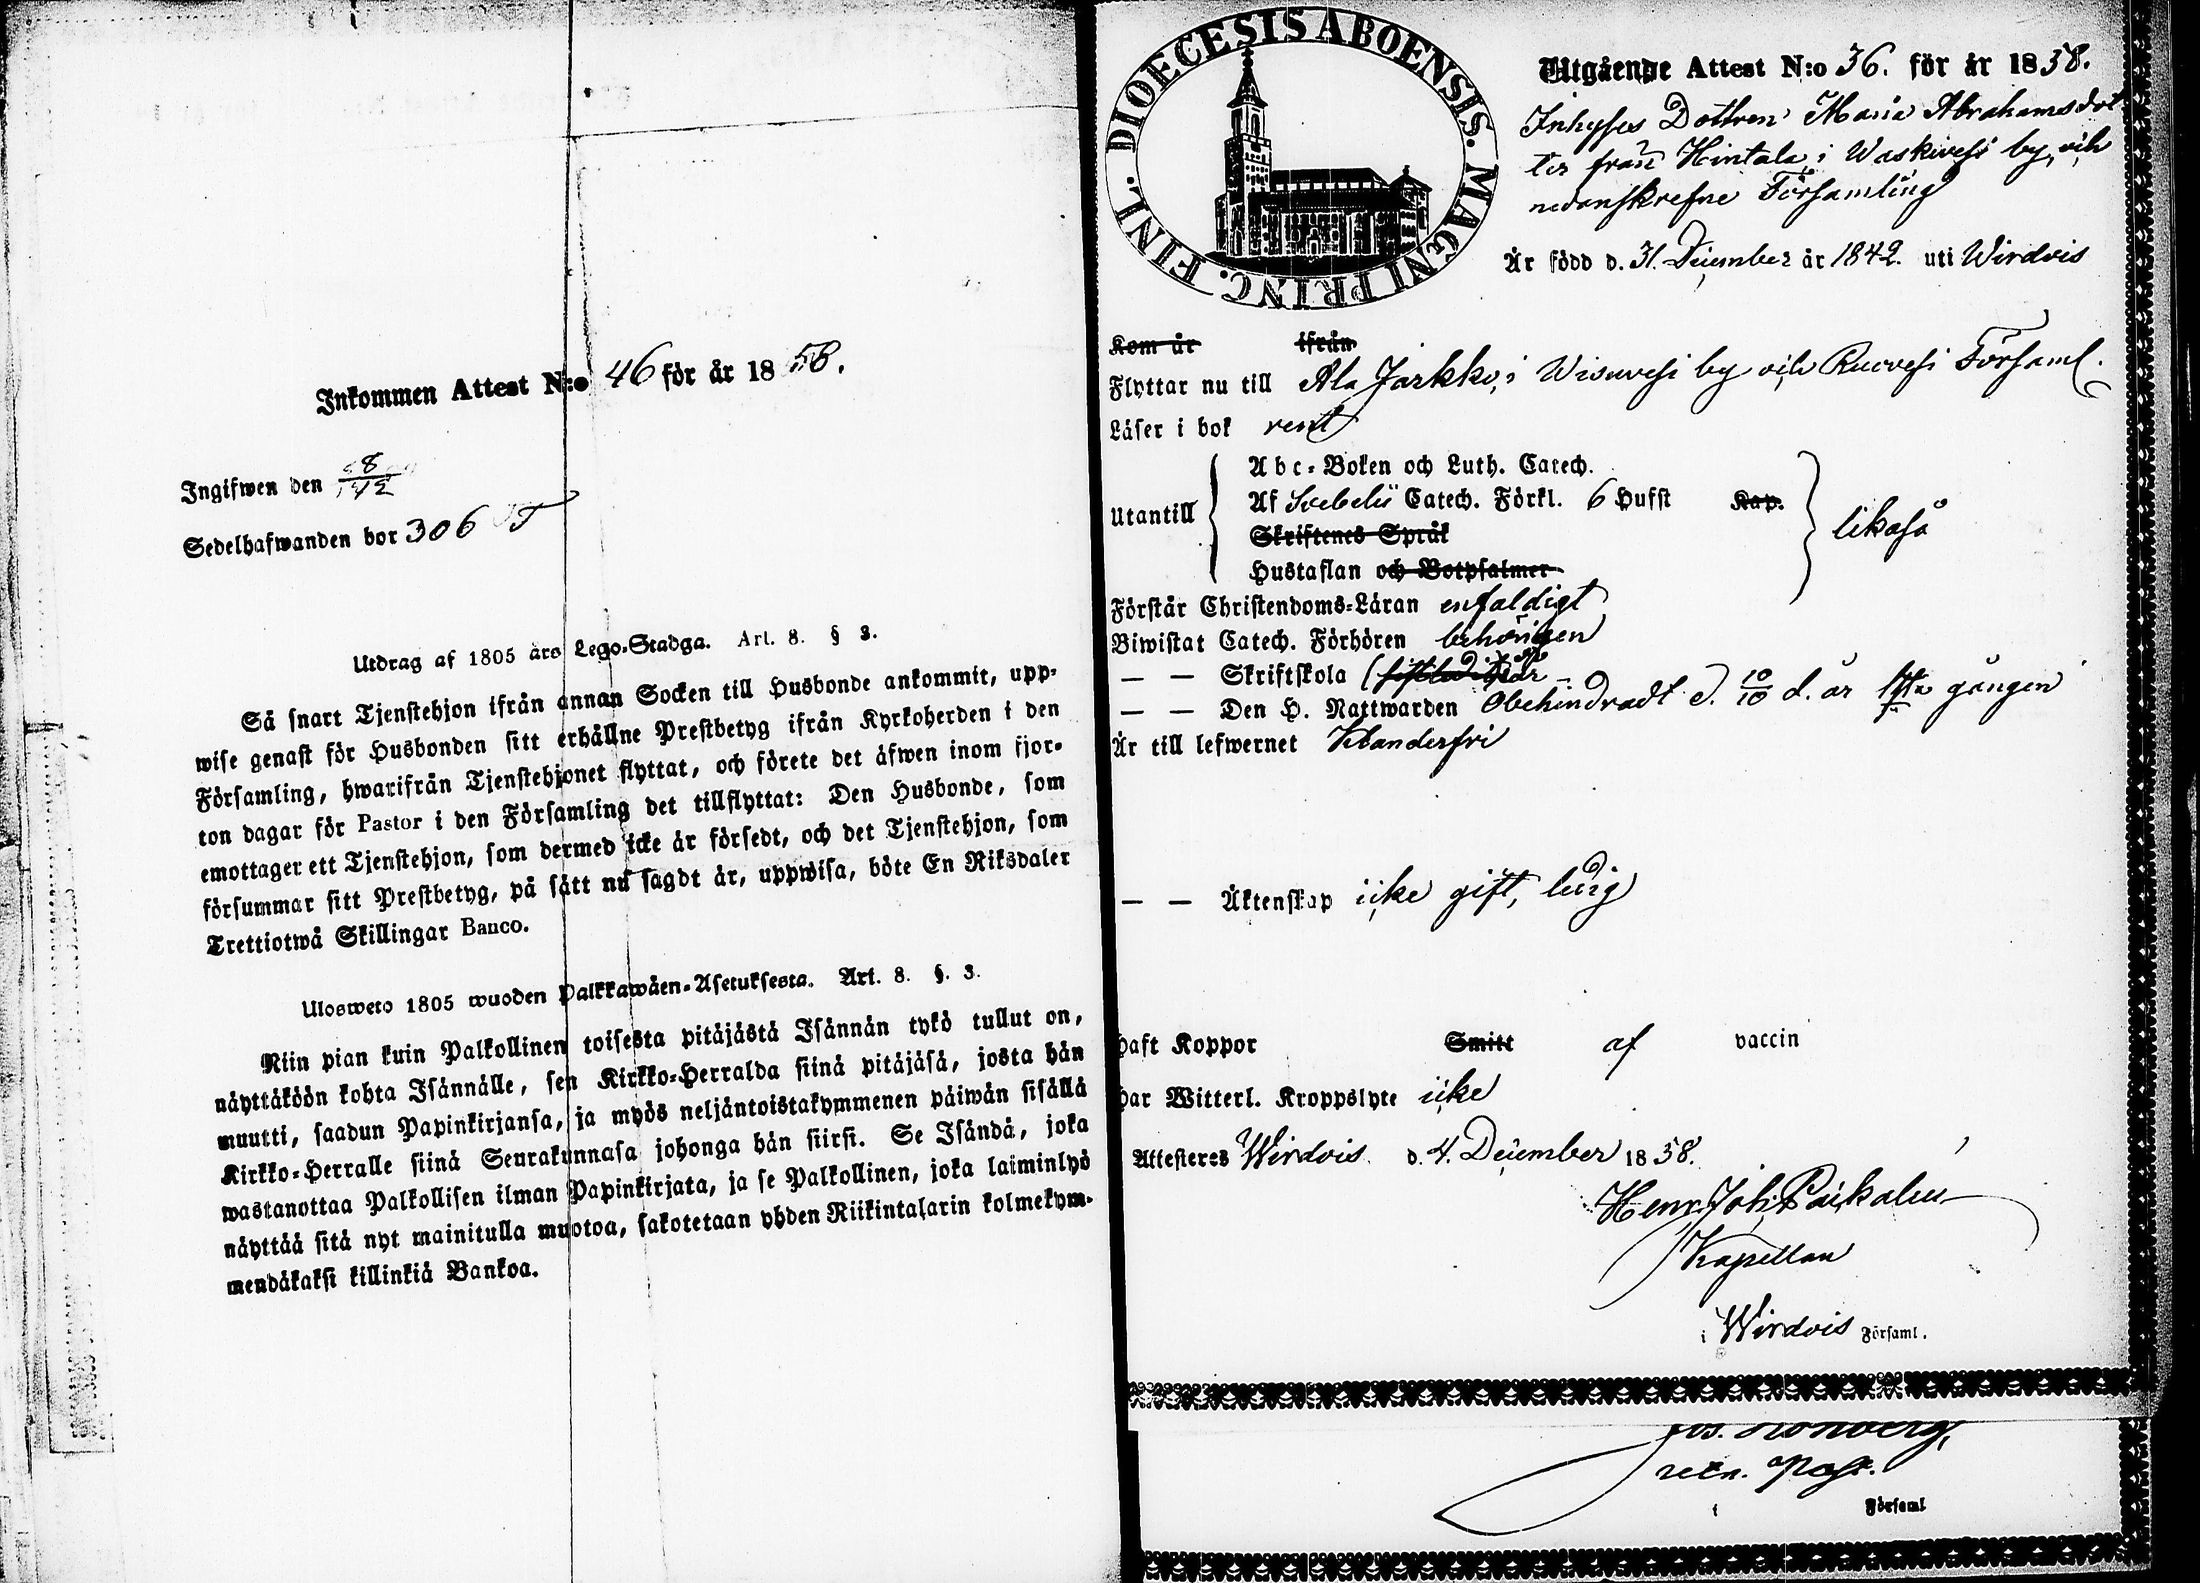 Inkommen Attest N:o 46 för år 1858.
Ingifwen den 8/12
Sedelhafwanden bor 306 T
Utdrag af 1805 års Lego-Stadga. Art. 8. § 3.
Så snart Tjenstehjon ifrån annan Socken till Husbonde ankommit, upp-
wise genast för Husbonden sitt erhållne Prestbetyg ifrån Kyrkoherden i den
Församling, hwarifrån Tjenstehjonet flyttat, och förete det äfwen inom fjor-
ton dagar för Pastor i den Församling det tillflyttat: Den Husbonde, som
emottager ett Tjenstehjon, som dermed icke är försedt, och det Tjenstehjon, som
försummar sitt Prestbetyg, på sätt nu sagdt är, uppwisa, böte En Riksdaler
Trettiotwå Skillingar Banco.
Ulosweto 1805 wuoden Palkkawäen-Asetuksesta. Art. 8. §. 3.
Niin pian kuin Palkollinen toisesta pitäjästä Isännän tykö tullut on,
näyttäköön kohta Isännälle, sen Kirkko-Herralda siinä pitäjäsä, josta hän
muutti, saadun Papinkirjansa, ja myös neljäntoistakymmenen päiwän sisällä
Kirkko-Herralle siinä Seurakunnasa johonga hän siirsi. Se Isändä, joka
wastanottaa Palkollisen ilman Papinkirjata, ja se Palkollinen, joka laiminlyö
näyttää sitä nyt mainitulla muotoa, sakotetaan yhden Riikintalarin kolmekym-
mendäkaksi killinkiä Bankoa.
DIOECESIS ABOENSIS. MAGNI PRINC. FINL.
Utgående Attest N:o 36. för år 1858.
Inhyses Dottren Maria Abrahamsdot
ter från Hintala i Waskivesi by, och
nedanskrefne Församling
Är född d. 31. December år 1842. uti Wirdois
Kom år ifrån
Flyttar nu till Ala Jarkko, i Wisuvesi by och Ruovesi Församl.
Läser i bok rent
Utantill
Abc-Boken och Luth. Catech.
Af Svebelii Catech. Förkl. 6 Hufst Kap.
Skriftenes Språk
Hustaflan och Botpsalmer
likaså
Förstår Christendoms-Läran enfaldigt
Biwistat Catech. Förhören behörigen
— — Skriftskola
— — Den H. Nattwarden Obehindradt d. 10/10 d. år 1sta gången
Är till lefwernet Klanderfri
— — Äktenskap icke gift, ledig
Haft Koppor Smitt af vaccin
Har Witterl. Kroppslyte icke
Attesteres Wirdois d. 4. December 1858.
Henr. Joh. Paikalen
Kapellan
i Wirdois Församl.
Past.
i Församl